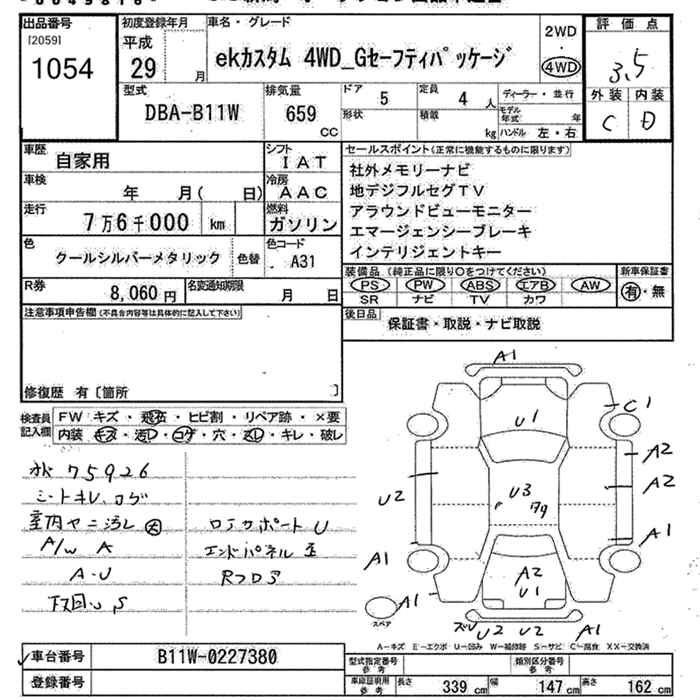 出品番号
[2059]
1054
初度登録年月
平成
29 月
車名・グレード
ekカスタム 4WD_Gセーフティパッケージ
2WD
・
4WD
評価点
3.5
外装 内装
C D
型式
DBA-B11W
排気量
659
CC
ドア
5
定員
4 人
形状
積載
kg
ディーラー・並行
モデル年式 年
ハンドル 左・右
車歴
自家用
シフト
IAT
車検
年 月( 日)
冷房
AAC
走行
7万6千000 km
燃料
ガソリン
色
クールシルバーメタリック
色替
色コード
A31
R券
8,060円
名変通知期限
月 日
セールスポイント(正常に機能するものに限ります)
社外メモリーナビ
地デジフルセグTV
アラウンドビューモニター
エマージェンシーブレーキ
インテリジェントキー
装備品(純正品に限り○をつけてください)
PS PW ABS エアB AW
SR ナビ TV カワ
新車保証書
有・無
後日品
保証書・取説・ナビ取説
注意事項申告欄(不具合内容等は具体的に記入して下さい)
修復歴 有〔箇所 〕
検査員
記入欄
FW キズ・飛石・ヒビ割・リペア跡・×要
内装 キズ・汚レ・コゲ・穴・スレ・キレ・破レ
75926
シートキレ、コゲ
室内ヤニ汚レ 大
A/W A
A・U
下回り S
コアサポート U
エンドパネル
Rフロア
A1
U1
C1
A2
U2
U3
A2
A1
A1
A2
U1
A1
U2 U2
A1
スペア
A-キズ E-エクボ U-凹み W-補修跡 S-サビ C-腐食 XX-交換済
車台番号
B11W-0227380
登録番号
型式指定番号
参考
類別区分番号
参考
車庫証明用
参考
長さ 339 cm 幅 147 cm 高さ 162 cm